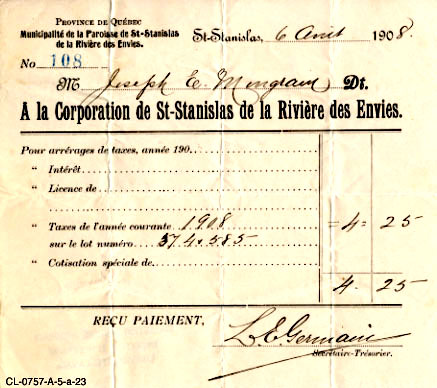 PROVINCE DE QUÉBEC
Municipalité de la Paroisse de St-Stanislas
de la Rivière des Envies.
St-Stanislas, 6 Août 1908.
No 108
M Joseph E. Mongrain Dt.
A la Corporation de St-Stanislas de la Rivière des Envies.
Pour arrérages de taxes, année 190
" Intérêt
" Licence de
" Taxes de l'année courante 1908 = 4 = 25
sur le lot numéro 574 & 585
" Cotisation spéciale de
4 - 25
REÇU PAIEMENT,
L. E. Germain
Secrétaire-Trésorier.
CL-0757-A-5-a-23